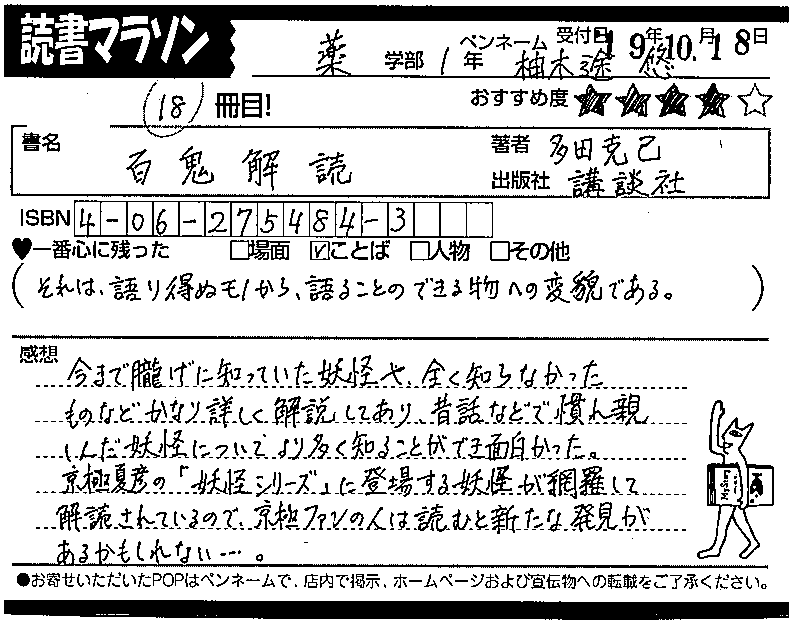 読書マラソン
薬 学部 1年 ペンネーム 柚木透 悠 受付日 19年10.月18日
18 冊目! おすすめ度 ★★★★☆
書名 百鬼解読 著者 多田克己
出版社 講談社
ISBN 4-06-275484-3
♥一番心に残った □場面 ☑ことば □人物 □その他
(それは、語り得ぬモノから、語ることのできる物への変貌である。)
感想
今まで朧げに知っていた妖怪や、全く知らなかった
ものなどかなり詳しく解説してあり、昔話などで慣れ親
しんだ妖怪についてより多く知ることができ面白かった。
京極夏彦の「妖怪シリーズ」に登場する妖怪が網羅して
解読されているので、京極ファンの人は読むと新たな発見が
あるかもしれない…。
●お寄せいただいたPOPはペンネームで、店内で掲示、ホームページおよび宣伝物への転載をご了承ください。